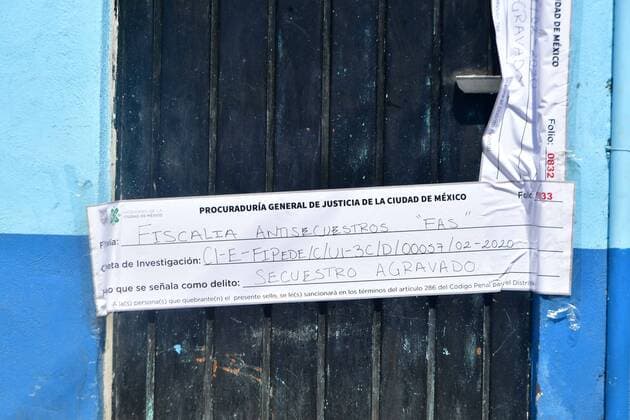 PROCURADURÍA GENERAL DE JUSTICIA DE LA CIUDAD DE MÉXICO
CIUDAD DE MÉXICO
FISCALIA ANTISECUESTROS "FAS"
de Investigación: CI-E-FIPEDE/C/UI-3C/D/00057/02-2020
que se señala como delito: SECUESTRO AGRAVADO
A la(s) persona(s) que quebrante(n) el presente sello, se le(s) sancionará en los términos del artículo 286 del Código Penal
AGRAVADO
CIUDAD DE MÉXICO
Folio: 0832